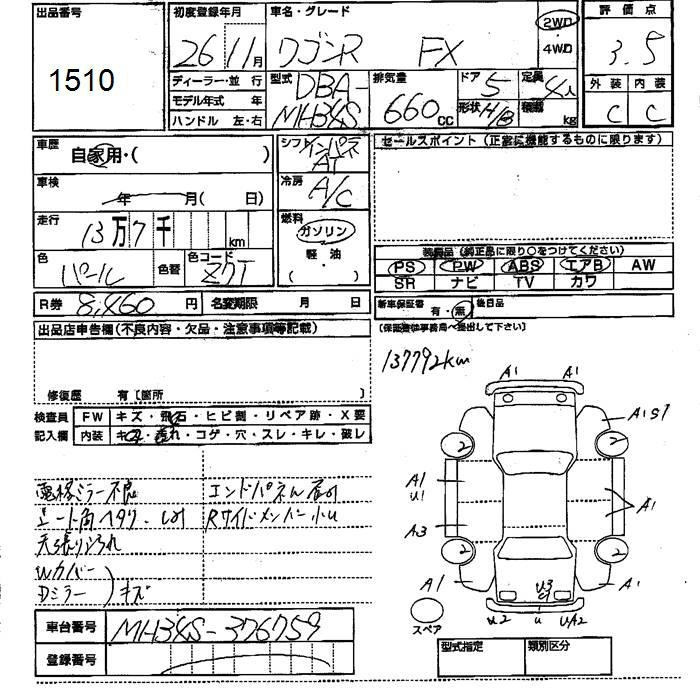 出品番号
1510
初度登録年月
26 11月
車名・グレード
ワゴンR FX
2WD
・
4WD
評価点
3.5
ディーラー・並行
モデル年式 年
ハンドル 左・右
型式
DBA-
MH34S
排気量
660 CC
ドア 5
形状 H/B
定員 4人
積載 kg
外装 内装
C C
車歴
自家用・( )
車検
年 月( 日)
走行
13万7千 km
色
パール
色替
色コード
Z7T
シフト インパネ
AT
冷房
A/C
燃料
ガソリン
・
軽油
( ・ )
セールスポイント(正常に機能するものに限ります)
装備品(純正品に限り○をつけてください)
PS PW ABS エアB AW
SR ナビ TV カワ
R券 8,460円
名変期限 月 日
新車保証書 有・無
後日品
〔保証書は事務局へ提出して下さい〕
出品店申告欄(不良内容・欠品・注意事項等記載)
修復歴 有〔箇所
検査員
記入欄
FW キズ・飛石・ヒビ割・リペア跡・X要
内装 キズ・汚れ・コゲ・穴・スレ・キレ・破レ
137792km
電格ミラー不良
シート角ヘタリ・
天張り汚れ
Wカバー
Dミラー
キズ
エンドパネル
Rサイドメンバー小U
A1 A1
A1 S7
2 2
A1
U1
A1
A3
2 2
A1 A1
U3
U2 U UA2
スペア
車台番号 MH34S-376759
登録番号
型式指定 類別区分